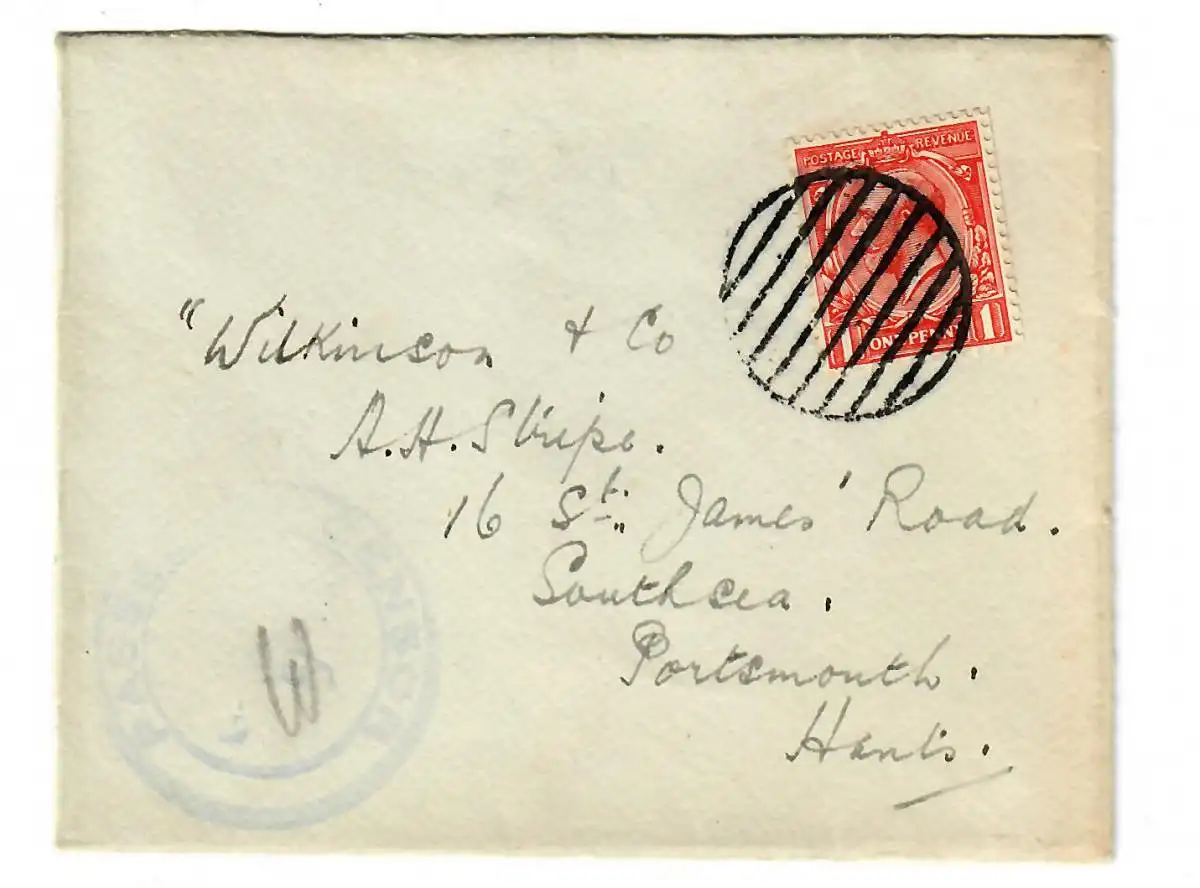 POSTAGE REVENUE
1 ONE PENNY 1
"Wilkinson & Co
A. H. Stripe.
16 St. James' Road.
Southsea.
Portsmouth.
Hants.
PASSED CENSOR